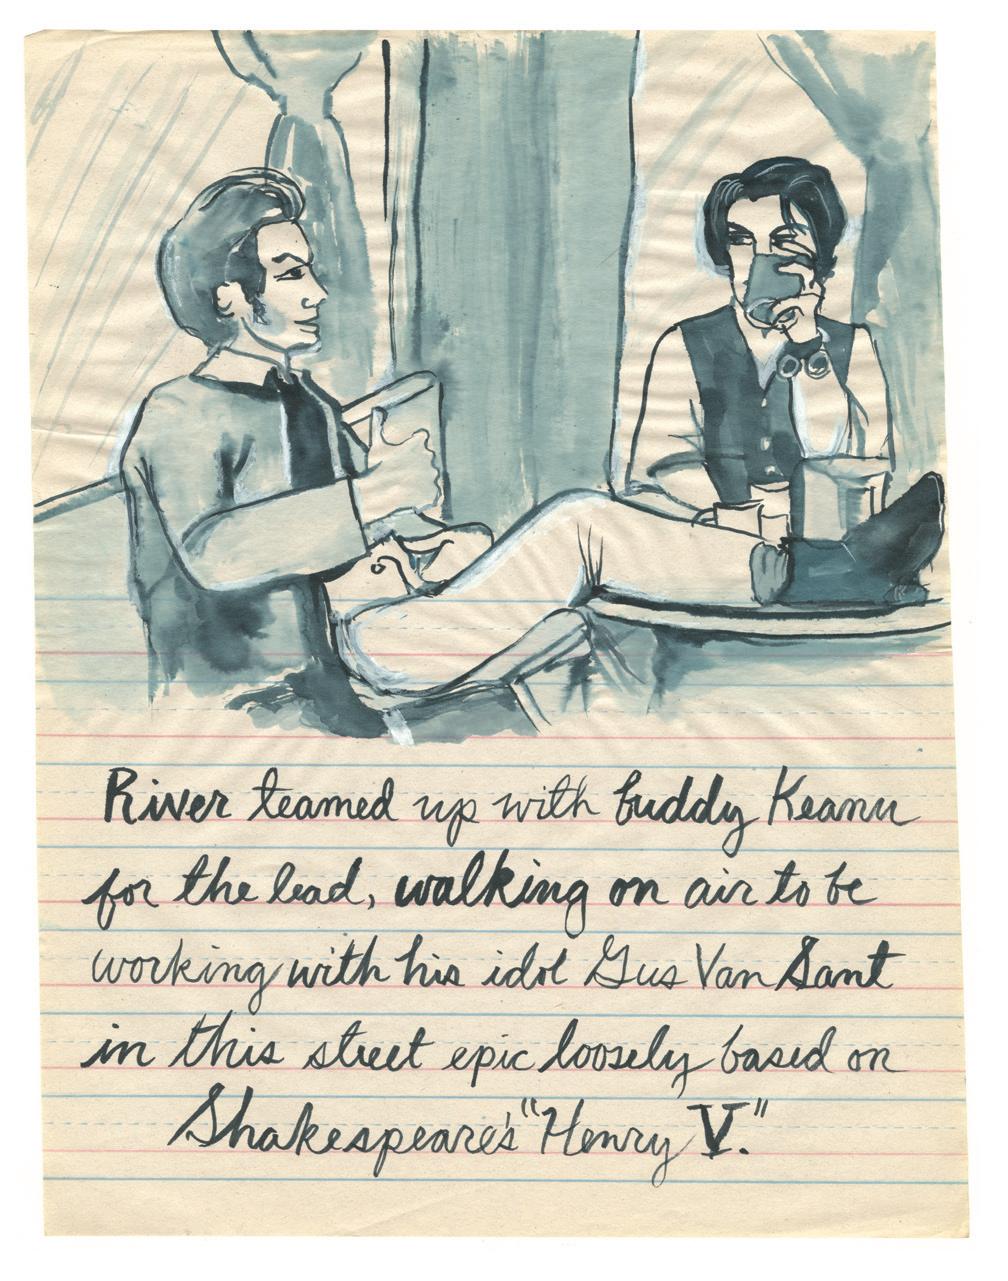 River teamed up with buddy Keanu
for the lead, walking on air to be
working with his idol Gus Van Sant
in this street epic loosely based on
Shakespeare's "Henry V."